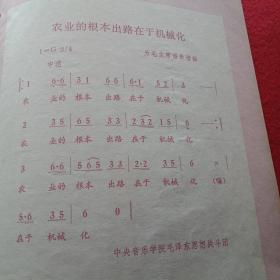 农业的根本出路在于机械化
1=G 2/4
中速 为毛主席语录谱曲
1 | 6·6 | 3 1 | 6 6 | 6·1 | 5 3 | 3 — |
农 业的 根本 出路 在于 机械 化
2 | 3 5 | 5 3 | 3 3 | 2 3 2 | 1 5 | 6 — :|
农 业的 根本 出路 在于 机械 化
3 | 6·6 | 5 6 5 | 3 3 | 2·2 | 3 5 | 6 × |
农 业的 根本 出路 在于 机械 化 (嗨)
5·6 | 3 5 | 6 0 |
在于 机械 化
中央音乐学院毛泽东思想战斗团